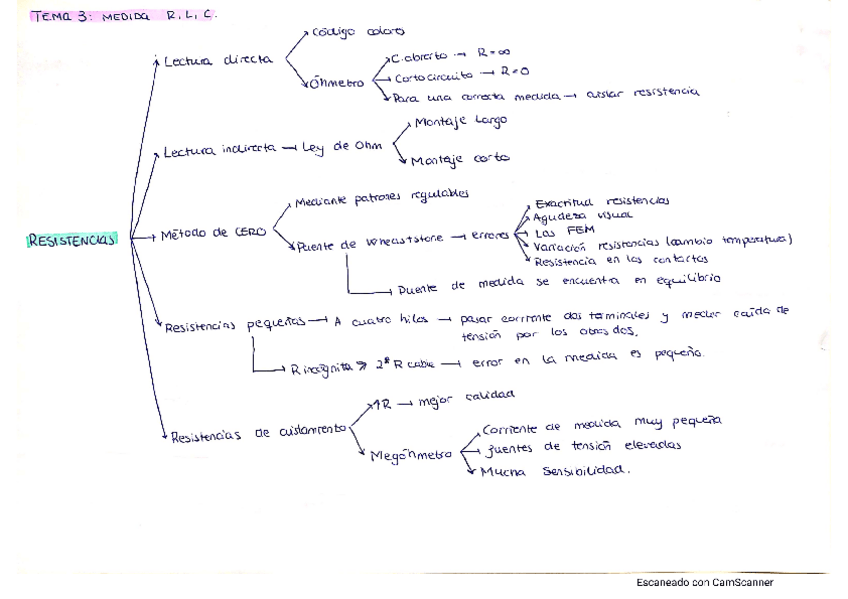 TEMA 3: MEDIDA R, L, C.
Código colores
Lectura directa
C. abierto → R = ∞
Óhmetro
Cortocircuito → R = 0
Para una correcta medida → aislar resistencia
Montaje largo
Lectura indirecta → Ley de Ohm
Montaje corto
Mediante patrones regulables
Exactitud resistencias
Agudeza visual
RESISTENCIAS
Método de CERO
Puente de Wheaststone → errores
Las FEM
Variación resistencias (cambio temperatura)
Resistencia en los contactos
Puente de medida se encuentra en equilibrio
Resistencias pequeñas → A cuatro hilos → pasar corriente dos terminales y medir caída de
tensión por los otros dos.
R incógnita >> 2* R cable → error en la medida es pequeño.
↑R → mejor calidad
Resistencias de aislamiento
Corriente de medida muy pequeña
Megóhmetro
fuentes de tensión elevadas
Mucha sensibilidad.
Escaneado con CamScanner